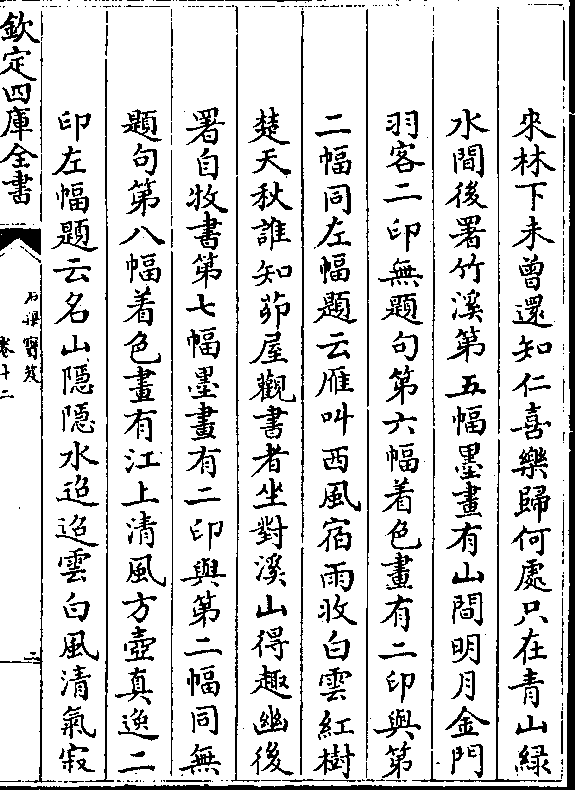 來林下未曽還知仁喜樂歸何處只在青山緑
水間後署竹溪第五幅墨畫有山間明月金門
羽客二印無題句第六幅着色畫有二印與第
二幅同左幅題云雁叫西風宿雨收白雲紅樹
楚天秋誰知茆屋觀書者坐對溪山得趣幽後
署自牧書第七幅墨畫有二印與第二幅同無
題句第八幅着色畫有江上清風方壺真逸二
印左幅題云名山隠隠水迢迢雲白風清氣寂
欽定四庫全書
石渠寶笈
卷十二